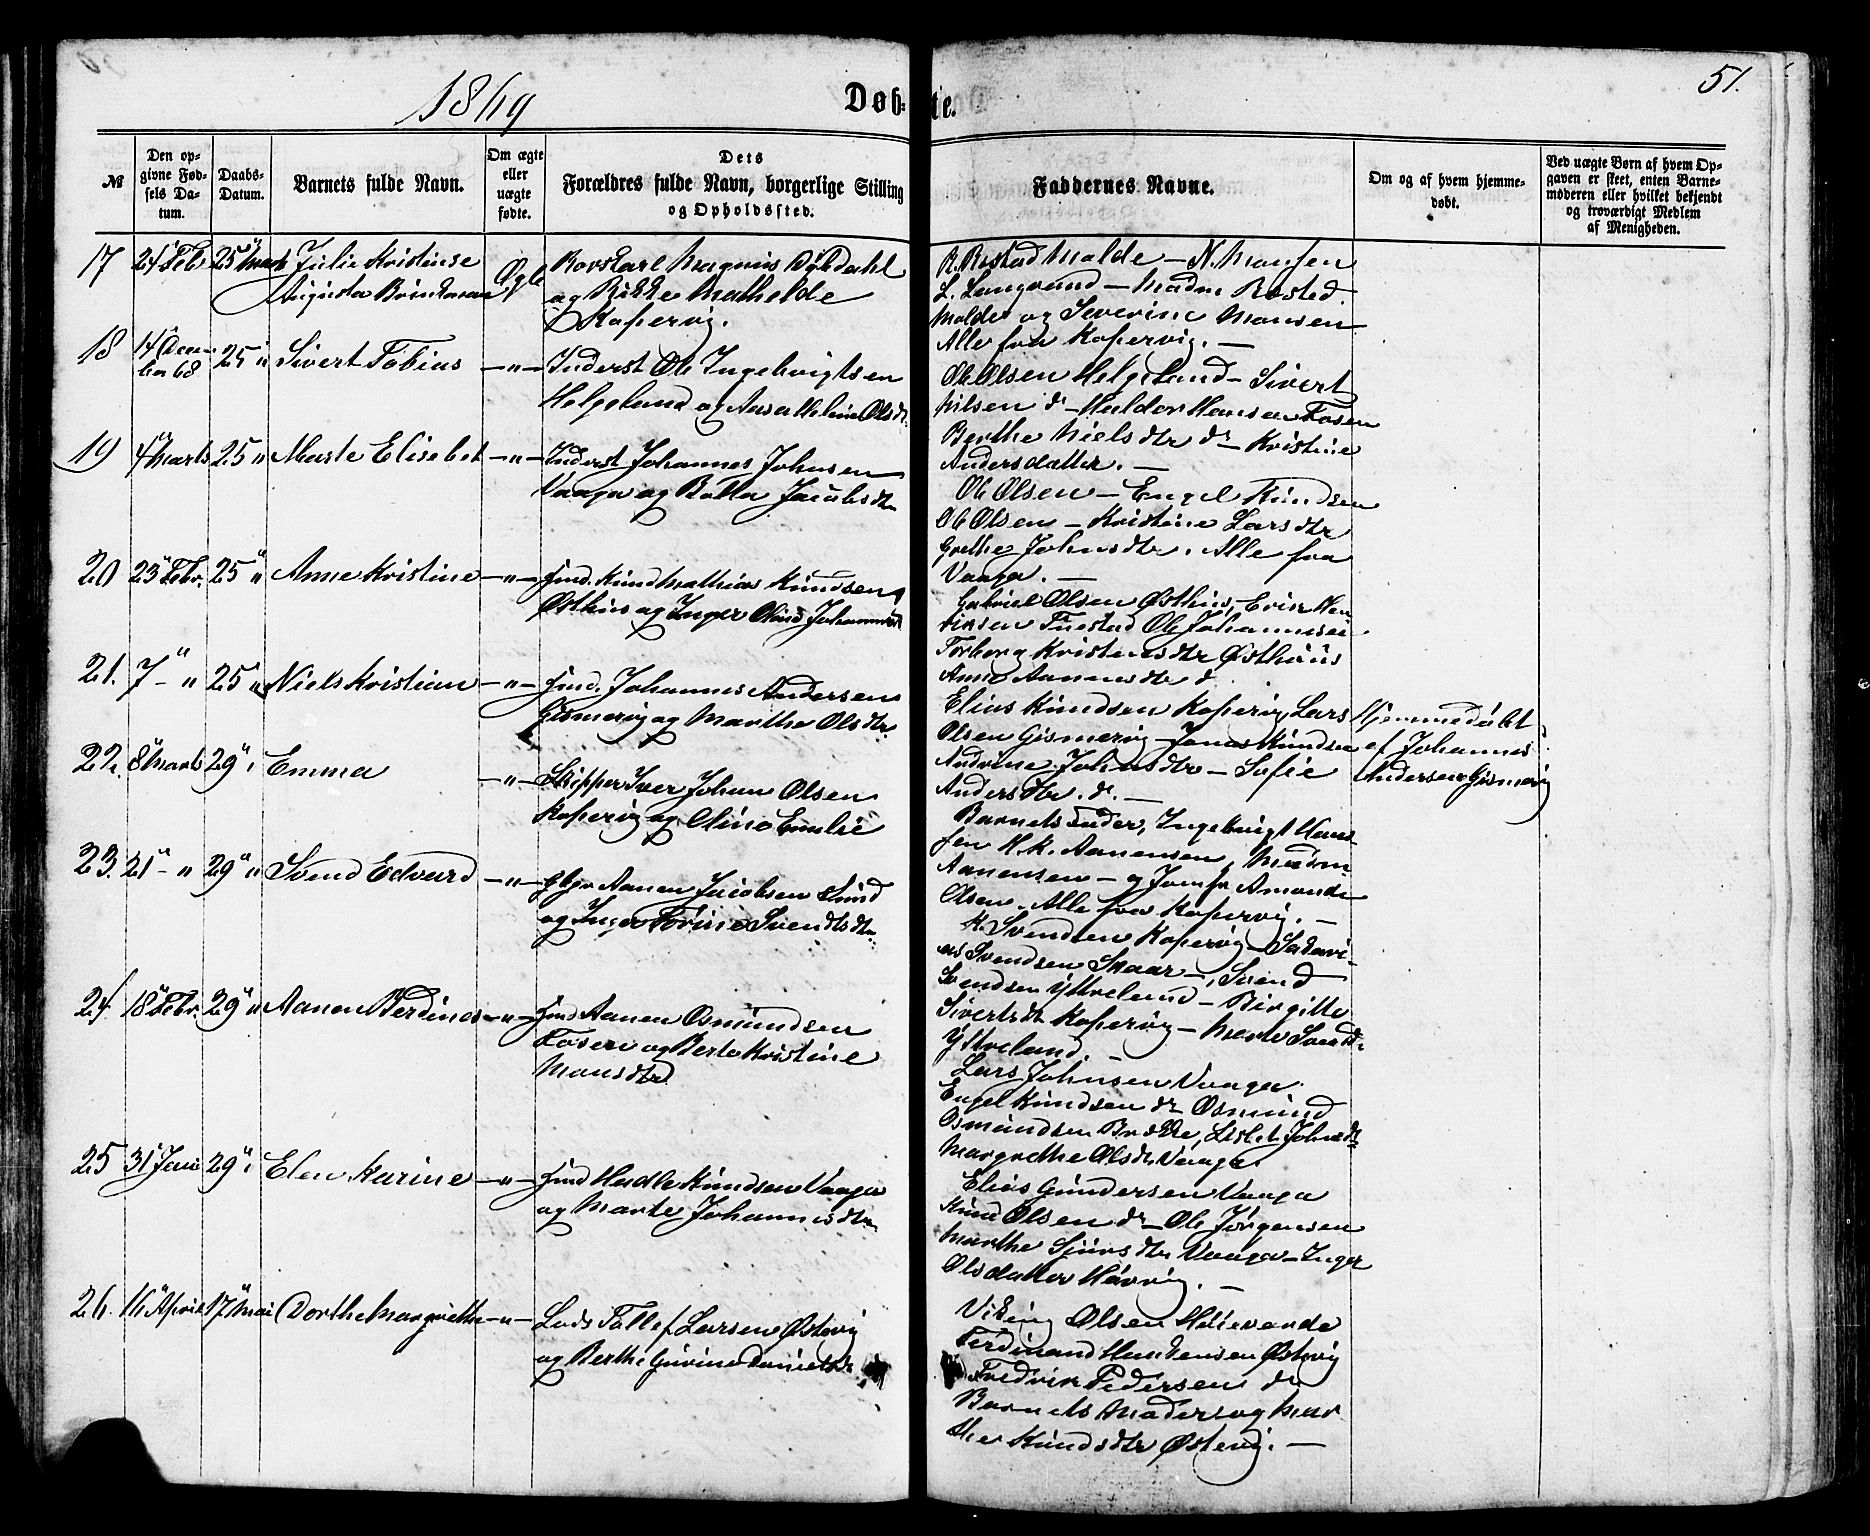 1869
Døb-
te.
51.
№
Den op-
givne Fød-
sels Da-
tum.
Daabs-
Datum.
Barnets fulde Navn.
Om ægte
eller
uægte
fødte.
Dets
Forældres fulde Navn, borgerlige Stilling
og Opholdssted.
Faddernes Navne.
Om og af hvem hjemme-
døbt.
Ved uægte Børn af hvem Op-
gaven er skeet, enten Barne-
moderen eller hvilket bekjendt
og troværdigt Medlem
af Menigheden.
17 24 Feb 25 Marts Julie Kristense
Augusta Brinkman
Magnus Dybdahl
og Rikke Mathelde
Kopervig.
Malde — N. Monsen
L. Langsund — Madm Rosted
Molde og Severine Monsen
Alle fra Kopervig. —
18 14 Decem
ber 68 25 " Sivert Tobius —"— Inderst Ole Ingebrigtsen
Helgeland og Aasa Olsdtr
Ole Olsen Helgeland — Sivert
Nilsen do — Haldor Hansen Fosen
Berthe Nielsdtr do — Kristine
Andersdatter. —
19 4 Marts 25 " Marte Elisebet —"— Inderst Johannes Johnsen
Vaage og Jacobsdtr
Ole Olsen — Engel Knudsen
Ole Olsen — Kristine Larsdtr
Grethe Johnsdtr. Alle fra
Vaage. —
20 23 Febr. 25 " Anne Kristine —"— Gmd. Knud Mathias Knudsen
Østhus og Inger Oline
Gabriel Olsen Østhus, Erik Hen
riksen Ole Johannesen
Torborg Kristensdtr Østhuus
Anne Aanensdtr d
21. 7 — " 25 " Niels Kristian —"— Gmd. Johannes Andersen
Gismervig og Marthe Olsdtr
Elias Knudsen Kopervig, Lars
Olsen Gismervig — Jonas Knudsen
Andrine Johnsdtr — Sofie
Andersdtr. d. —
Hjemmedøbt
af Johannes
Andersen Gismervig
22. 8 Marts 29 " Emma —"— Skipper Iver Johan Olsen
Kopervig og Oline Emelie
Barnets Fader, Ingebrigt Han
sen H. K. Aanensen, Madm
Aanensen — og Jomfr Amande
Olsen. Alle fra Kopervig. —
23. 21 — " 29 " Svend Edvard —"— Aanen Jacobsen Sund
og Inger Torine Svendsdtr
K. Svendsen Kopervig —
Svendsen Skaar — Svend
Svendsen Ytreland — Birgitte
Sivertsdtr Kopervig — Marte Svendsd
Ytreland. —
24. 18 Febr. 29 " Aanen Berdines —"— Gmd Aanen Osmundsen
Fosen og Berte Kristine
Monsdtr
Lars Johnsen Vaage.
Engel Knudsen do Osmund
Osmundsen Brekke, Lisbet Johnsdtr
Margrethe Olsdtr Vaage
25 31 Jan 29 " Elen Karine —"— Gmd Hadle Knudsen Vaage
og Marte Johannesdtr
Elias Gundersen Vaage
Knud Olsen do — Ole Jørgensen
Marthe Sjursdtr Vaage — Inger
Olsdatter Hovvig. —
26. 16 April 17 Mai Dorthe Margrethe —"— Lods Tollef Larsen Østevig
og Berthe Gurine Danielsdtr
Viking Olsen Høievarde
Ferdinand Østevig
Fredrik Pedersen do
Barnets Moder og Mar
the Knudsdtr Østevig. —